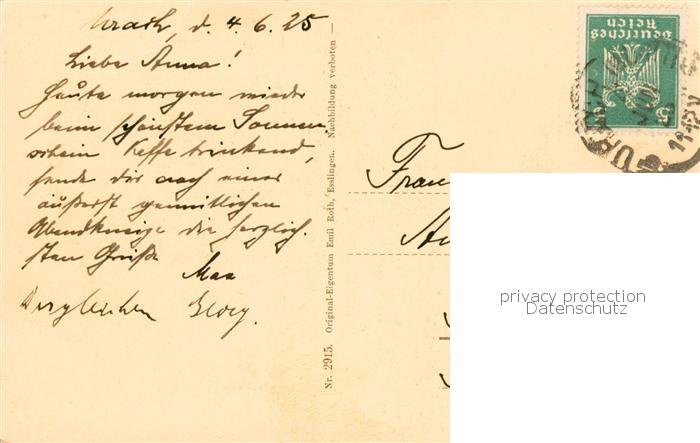 Urach, d. 4.6.25
Liebe Anna!
Heute morgen wieder
beim schönstem Sonnen
schein Kaffe trinkend,
sende dir nach einer
äußerst gemütlichen
Abendkneipe die herzlich-
sten Grüße
Max
Georg.
Nr. 2915. Original-Eigentum Emil Roth, Esslingen. Nachbildung verboten —
Deutsches
Reich
5 5
URACH
Frau
privacy protection
Datenschutz